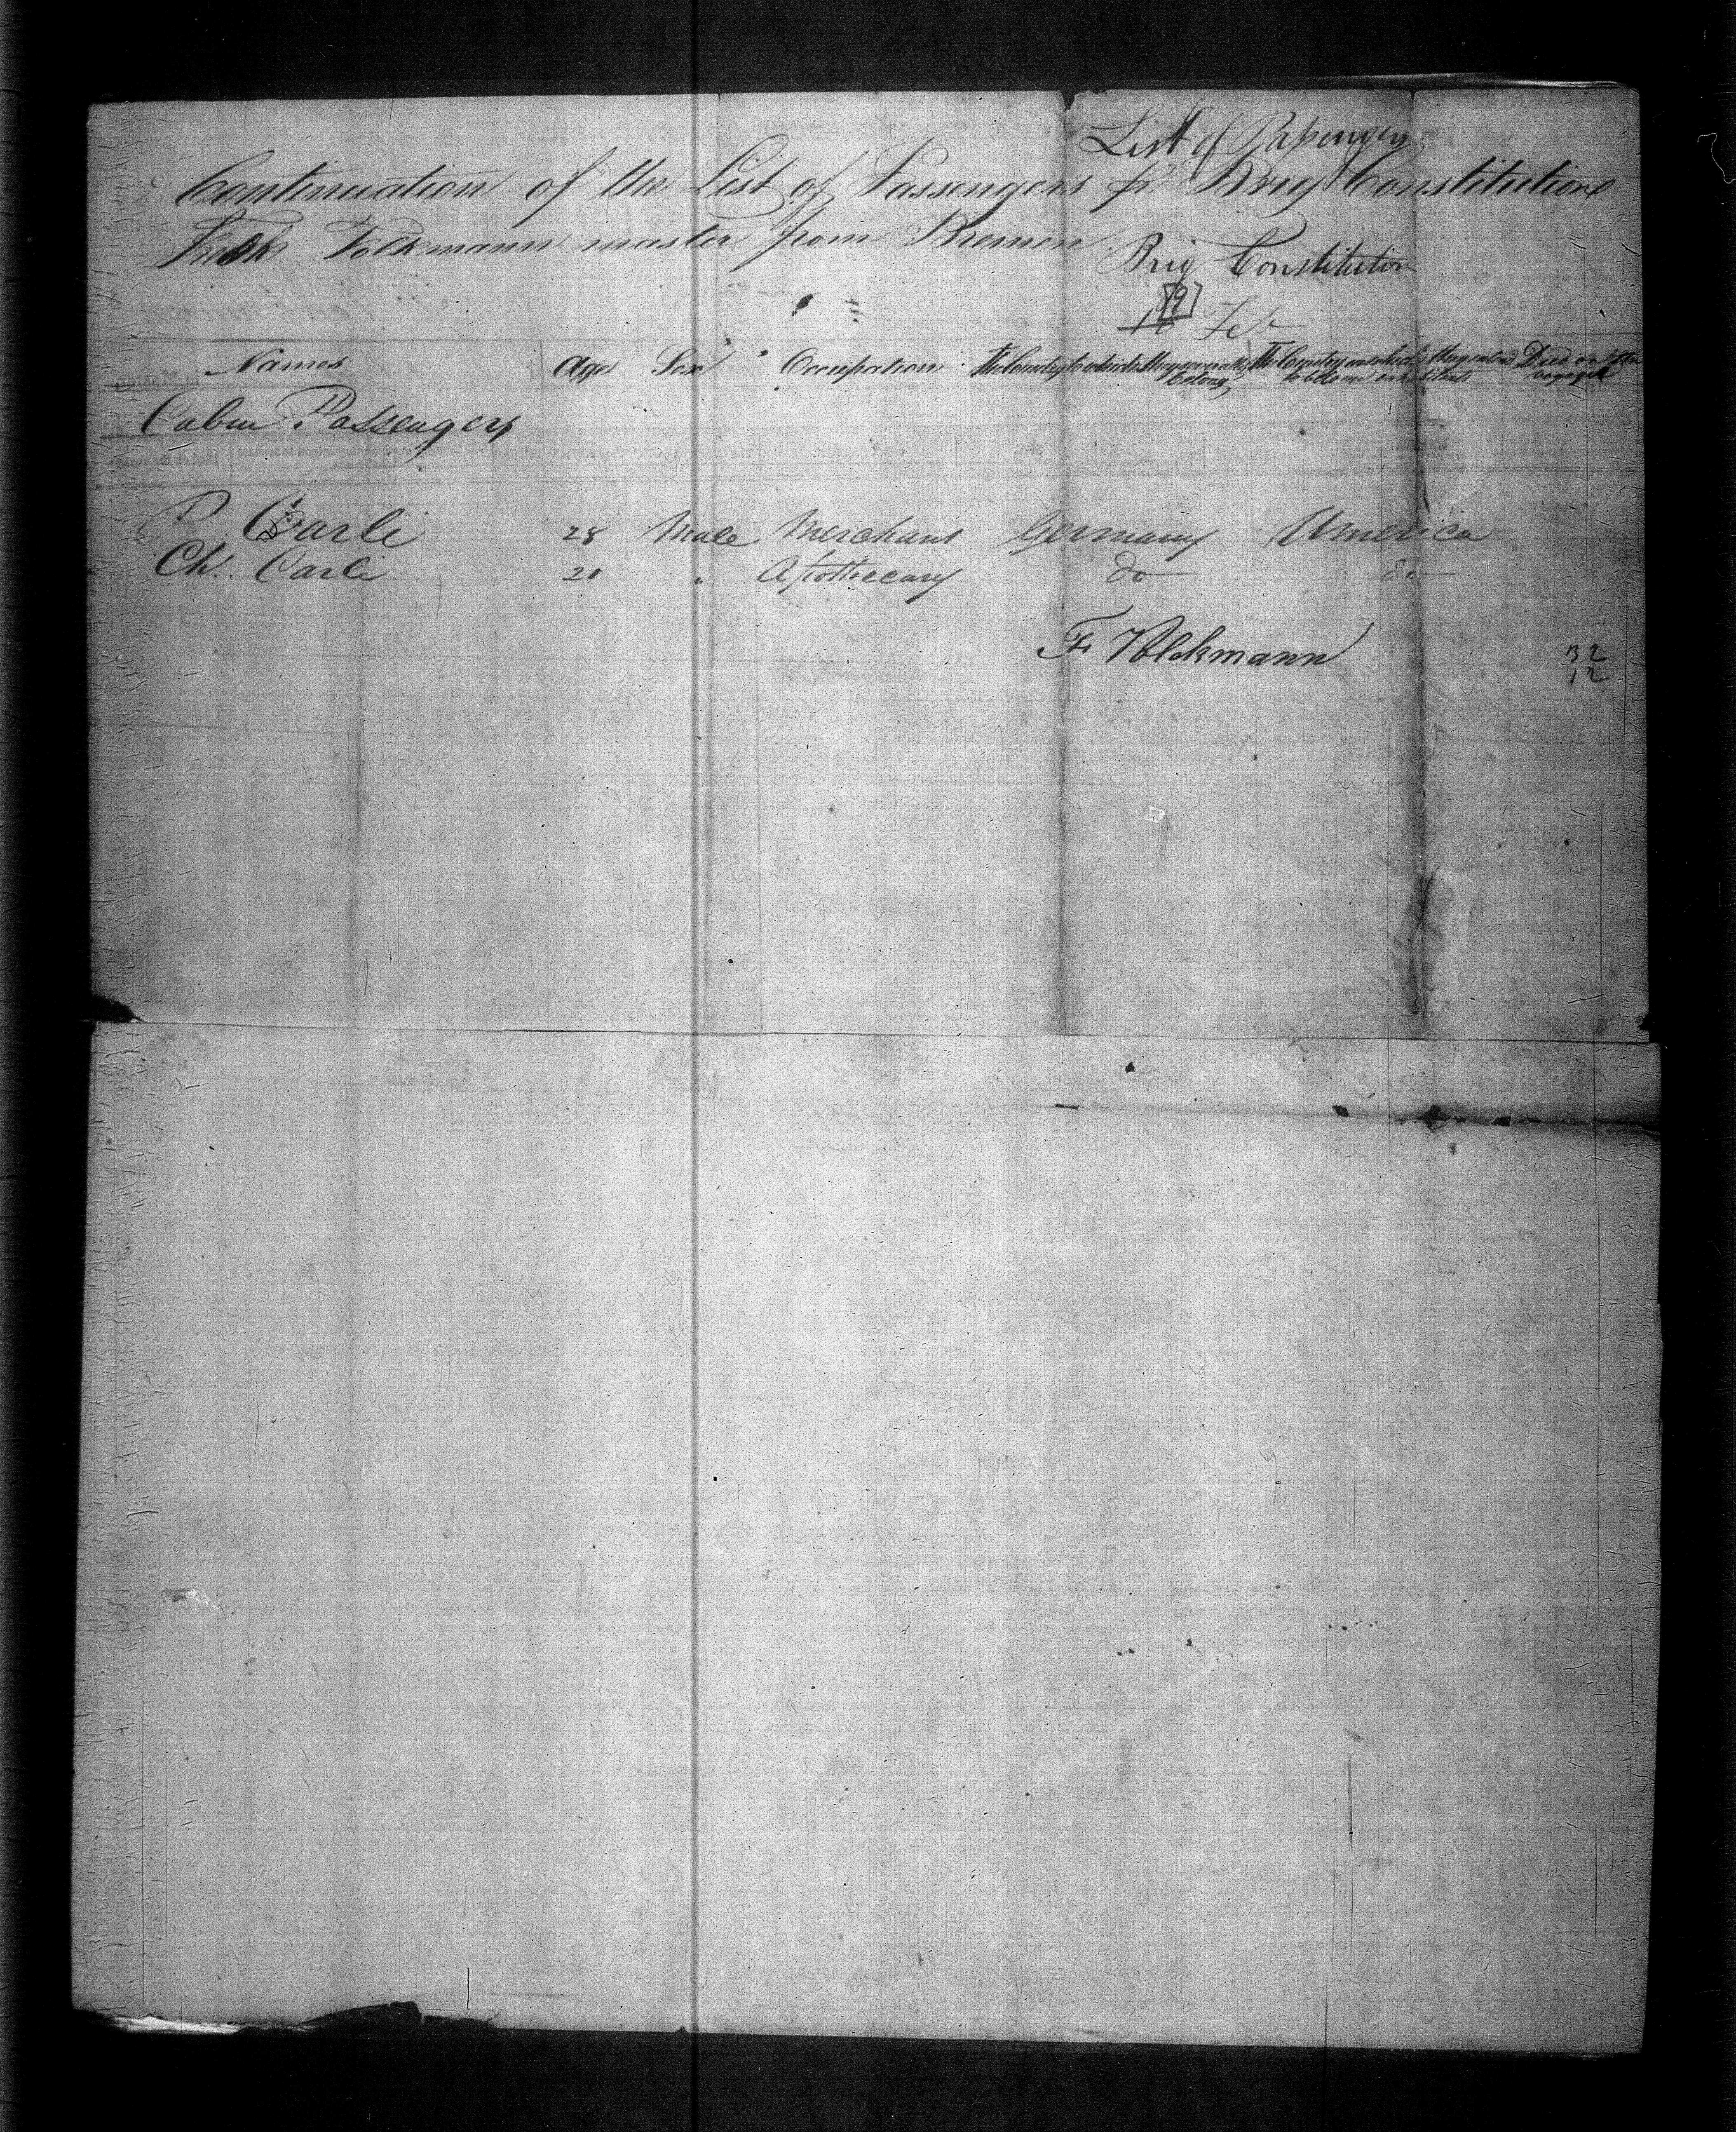 List of Passengers
Continuation of the List of Passengers pr Brig Constitution
Fredk Volkmann master from Bremen
Brig Constitution
[9]
Feb
Names Age Sex Occupation The Country to which they severally belong The Country in which they intend to become inhabitants Died on the voyage
Cabin Passengers
P. Carli 28 Male Merchant Germany America
Ch. Carli 20 " Apothecary do do
F. Volckmann
32
12